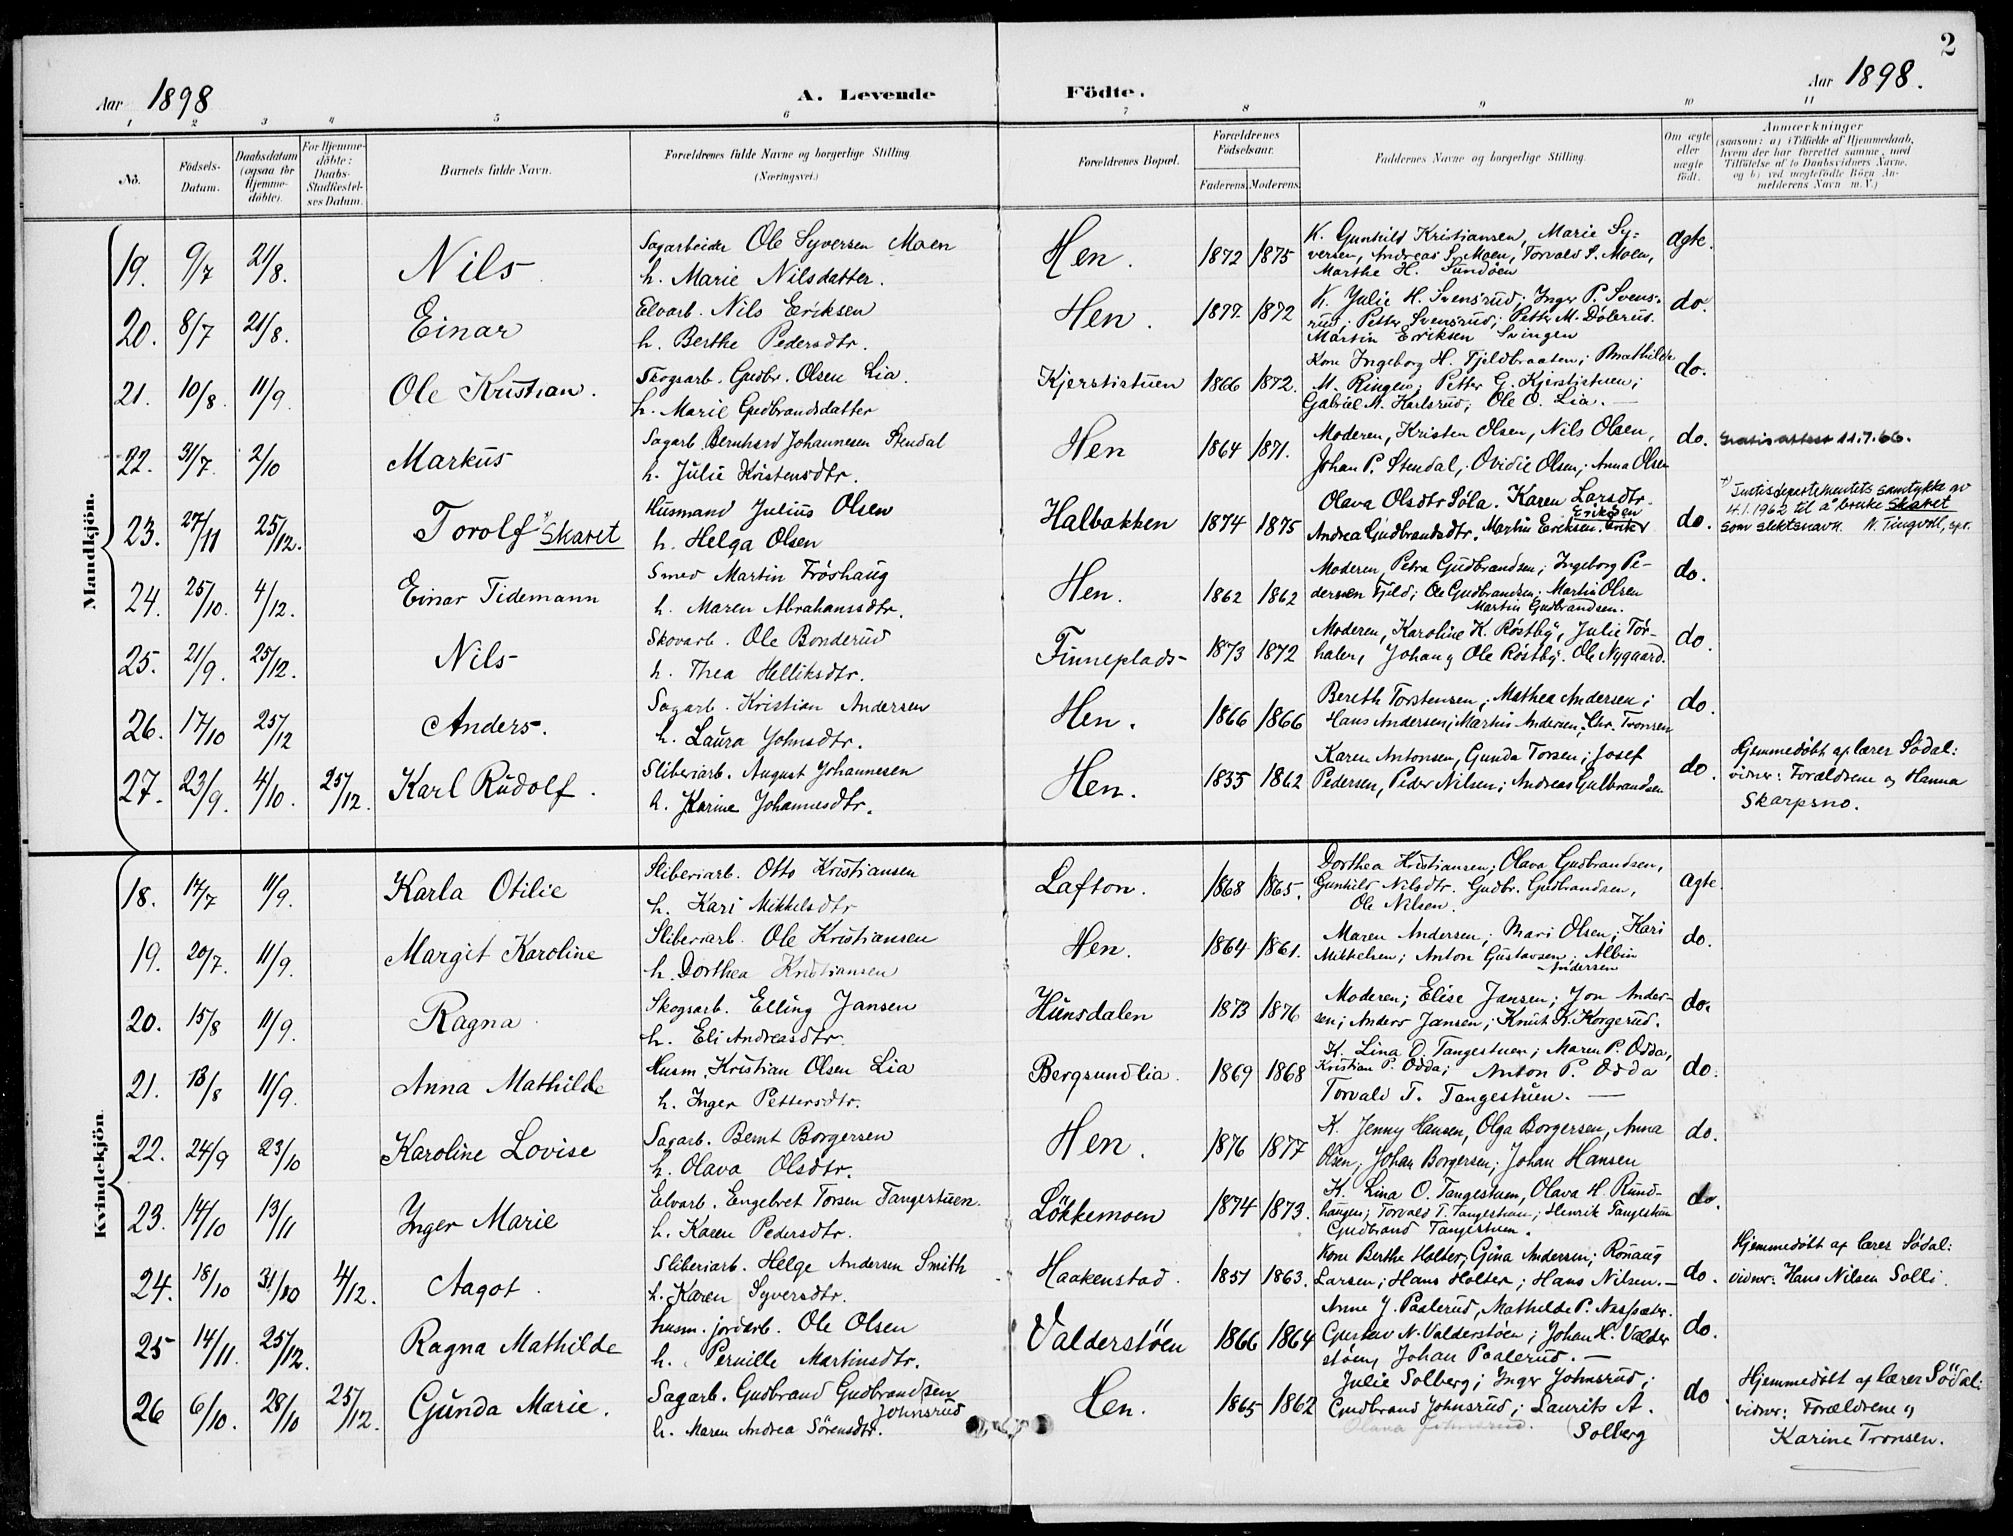 2
Aar 1898 A. Levende Födte. Aar 1898.
1 2 3 4 5 6 7 8 9 10 11
No. Födsels-Datum. Daabsdatum (ogsaa for Hjemmedöbte). For Hjemmedöbte: Daabs-Stadfæstelses Datum. Barnets fulde Navn. Forældrenes fulde Navne og borgerlige Stilling (Næringsvei.) Forældrenes Bopæl. Forældrenes Födselsaar. Faderens. Moderens. Faddernes Navne og borgerlige Stilling. Om ægte eller uægte födt. Anmærkninger (saasom: a) i Tilfælde af Hjemmedaab, hvem der har forrettet samme, med Tilföielse af to Daabsvidners Navne, og b) ved uægtefödte Börn Anmelderens Navn m. V.)
Mandkjön.
19. 9/7 21/8. Nils Sagarbeider Ole Syversen Moen
h. Marie Nilsdatter. Hen. 1872 1875 K. Gunhild Kristiansen, Marie Sy-
versen, Andreas S. Moen, Torvald S. Moen,
Marthe H. Sundøen ægte.
20. 8/7 21/8. Einar Elvarb. Nils Eriksen
h. Berthe Pedersdtr. Hen. 1877. 1872 K. Julie H. Svensrud; Inger P. Svens-
rud; Petter Svensrud; Petter M. Dölerud.
Martin Eriksen Svingen do.
21. 10/8. 11/9. Ole Kristian. Skogsarb. Gudbr. Olsen Lia.
h. Marie Gudbrandsdatter Kjerstistuen 1866 1872. Kone Ingeborg H. Fjeldbraaten; Mathilde
M. Ringen; Petter G. Kjerstistuen;
Gabriel N. Karlsrud; Ole O. Lia. — do.
22. 31/7. 2/10 Markus Sagarb. Bernhard Johannesen Stendal
h. Julie Kristensdtr. Hen 1864 1871. Moderen, Kristen Olsen, Nils Olsen,
Johan P. Stendal, Ovidie Olsen, Anna Olsen do. Gratisattest 11.7.66.
23. 27/11 25/12. Torolf x) Skaret Husmand Julius Olsen
h. Helga Olsen Halbakken 1874 1875 Olava Olsdtr Söla. Karen Larsdtr.
Eriksen
Andrea Gudbrandsdtr. Martin Eriksen. do. x) Justisdepartementets samtykke av
14.1.1962 til å bruke Skaret
som slektsnavn. N. Tingvoll, spr.
24. 25/10. 4/12. Einar Tidemann Smed Martin Fröshaug
h. Maren Abrahamsdtr. Hen. 1862 1862 Moderen, Petra Gudbrandsen; Ingeborg Pe-
dersen Fjeld; Ole Gudbrandsen; Martin Olsen
Martin Gudbrandsen. do.
25. 21/9. 25/12. Nils Skovarb. Ole Bonderud
h. Thea Helliksdtr. Finneplads- 1873 1872 Moderen, Karoline K. Røstby, Julie Tor-
halen, Johan og Ole Røstby. Ole Nygaard. do.
26. 17/10 25/12 Anders. Sagarb. Kristian Andersen
h. Laura Johnsdtr. Hen. 1866 1866 Bereth Torstensen; Mathea Andersen;
Hans Andersen; Martin Andersen; Chr. Tronsen do.
27. 23/9. 4/10. 25/12. Karl Rudolf. Sliberiarb. August Johannesen
h. Karine Johannesdtr. Hen. 1835 1862 Karen Antonsen, Gunda Torsen; Josef
Pedersen, Peder Nilsen; Andreas Gulbrandsen do. Hjemmedöbt af lærer Södal:
vidner: Forældrene og Hanna
Skarpsno.
Kvindekjön.
18. 17/7 11/9. Karla Otilie Sliberiarb. Otto Kristiansen
h. Kari Mikkelsdtr Lafton. 1868 1865. Dorthea Kristiansen; Olava Gudbrandsen,
Gunhild Nilsdtr. Gudbr. Gudbrandsen,
Ole Nilsen. ægte.
19. 20/7. 11/9. Margit Karoline Sliberiarb. Ole Kristiansen
h. Dorthea Kristiansen Hen. 1864 1861. Maren Andersen; Mari Olsen; Kari
Mikkelsen; Anton Gustavsen; Albin
Andersen do.
20. 15/8 11/9. Ragna Skogsarb. Elling Jansen
h. Eli Andreasdtr. Hunsdalen 1873 1876 Moderen; Elise Jansen; Jon Ander-
sen; Anders Jansen; Knut K. Korgerud. do.
21. 13/8 11/9. Anna Mathilde Husm. Kristian Olsen Lia
h. Inger Pettersdtr. Bergsundlia. 1869 1868 K. Lina O. Tangestuen; Maren P. Odda,
Kristian P. Odda; Anton P. Odda
Torvald T. Tangestuen. — do.
22. 24/9 23/10 Karoline Lovise Sagarb. Bernt Borgersen
h. Olava Olsdtr. Hen. 1876 1877 K. Jenny Hansen, Olga Borgersen, Anna
Olsen; Johan Borgersen; Johan Hansen do.
23. 14/10 13/11 Inger Marie Elvarb. Engebret Torsen Tangestuen.
h. Karen Pedersdtr. Lökkemoen 1874 1873. K. Lina O. Tangestuen, Olava H. Rund-
haugen; Torvald T. Tangestuen; Henrik Tangestuen
Gudbrand Tangestuen. do.
24. 18/10 31/10 4/12. Aagot. Sliberiarb. Helge Andersen Smith
h. Karen Syversdtr. Haakenstad. 1851 1863. Kone Berthe Holter; Gina Andersen; Ronaug
Larsen; Hans Holter; Hans Nilsen. — do. Hjemmedöbt af lærer Södal:
vidner: Hans Nilsen Solli.
25 14/11. 25/12. Ragna Mathilde husm. jordarb. Ole Olsen
h. Pernille Martinsdtr. Valderstöen 1866 1864 Anne J. Paalerud, Mathilde P.
Gustav N. Valderstöen; Johan H. Valder
stöen, Johan Paalerud. — do.
26 6/10. 28/10 25/12. Gunda Marie. Sagarb. Gudbrand Gudbrandsen
Johnsrud
h. Maren Andrea Sörensdtr. Hen. 1865 1862 Julie Solberg; Inger Johnsrud;
Gudbrand Johnsrud; Laurits A.
Solberg
Olava Johnsrud. do Hjemmedöbt af lærer Södal:
vidner: Forældrene og
Karine Tronsen.